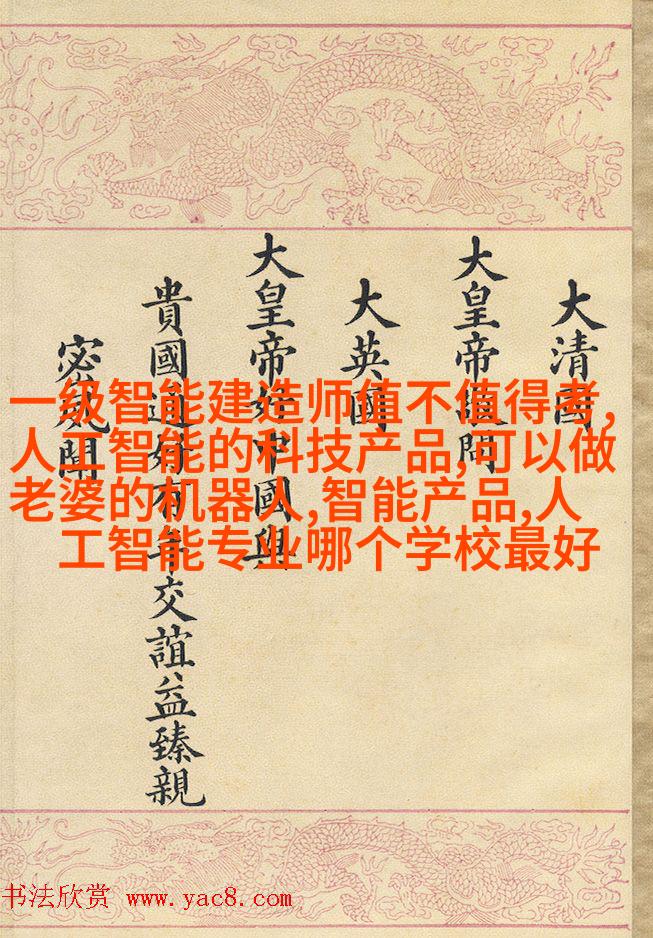 大清國
大皇帝問
大英國
大皇帝好中國與
貴國通好有年交誼益臻親
密夙聞
一级智能建造师值不值得考,
人工智能的科技产品,可以做
老婆的机器人,智能产品,人
工智能专业哪个学校最好
书法欣赏 www.yac8.com